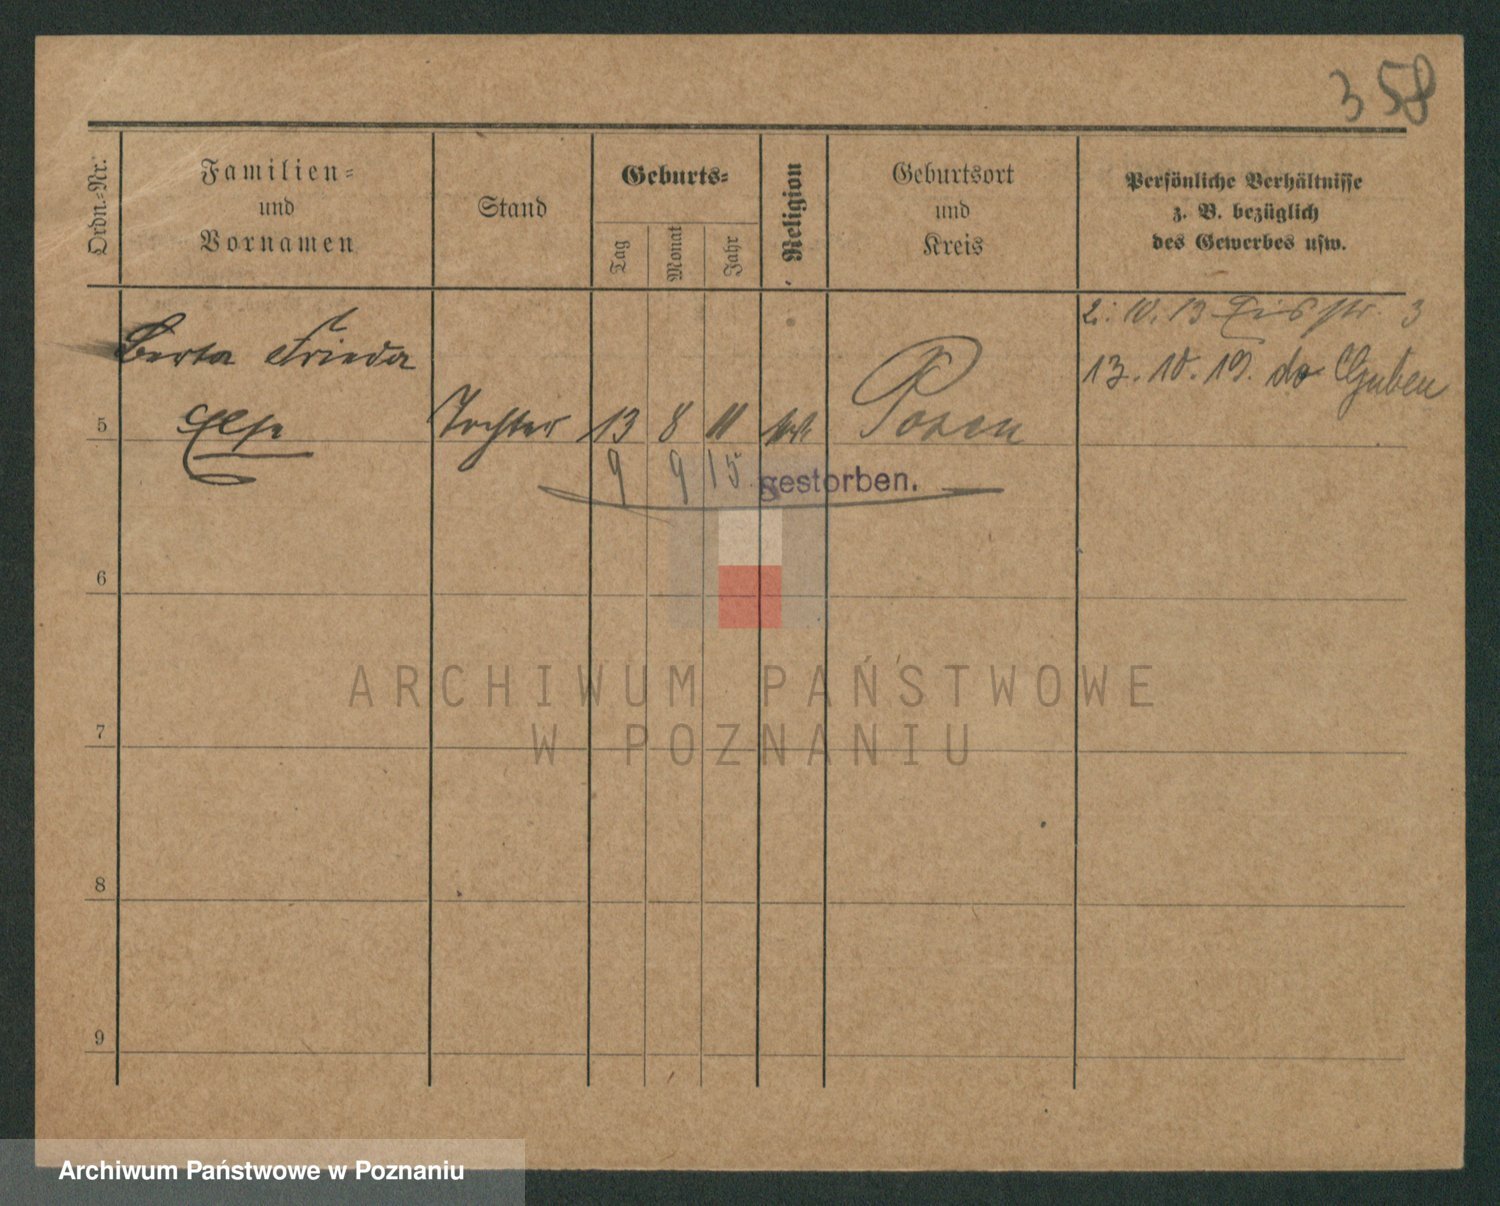 358
Ordn.-Nr.
Familien-
und
Vornamen
Stand
Geburts-
Tag
Monat
Jahr
Religion
Geburtsort
und
Kreis
Persönliche Verhältnisse
z. B. bezüglich
des Gewerbes usw.
2. 10. 13 Eisstr. 3
Berta Frieda
13. 10. 19. do Guben
5 Else Tochter 13 8 11 Posen
9 9 15 gestorben.
6
ARCHIWUM PAŃSTWOWE
W POZNANIU
7
8
9
Archiwum Państwowe w Poznaniu